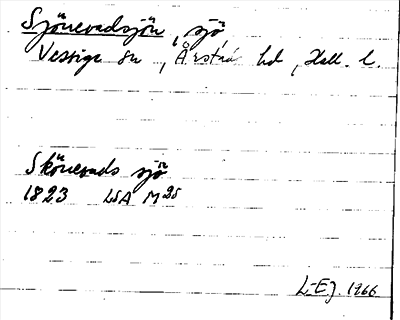 Sjönevadsjön, sjö
Vessige sn, Årstad hd, Hall. l.
Skönevads sjö
1823 LSA M25
L-Ej. 1966